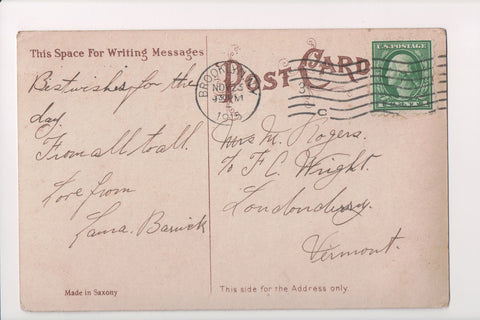 This Space For Writing Messages
POST CARD
U.S. POSTAGE
BROOKLYN
NOV 23
C
Best wishes for the
day.
From all to all.
Love from
Laura. Barwick
Mrs M. Rogers.
To F C. Wright.
Londonderry.
Vermont.
Made in Saxony
This side for the Address only.